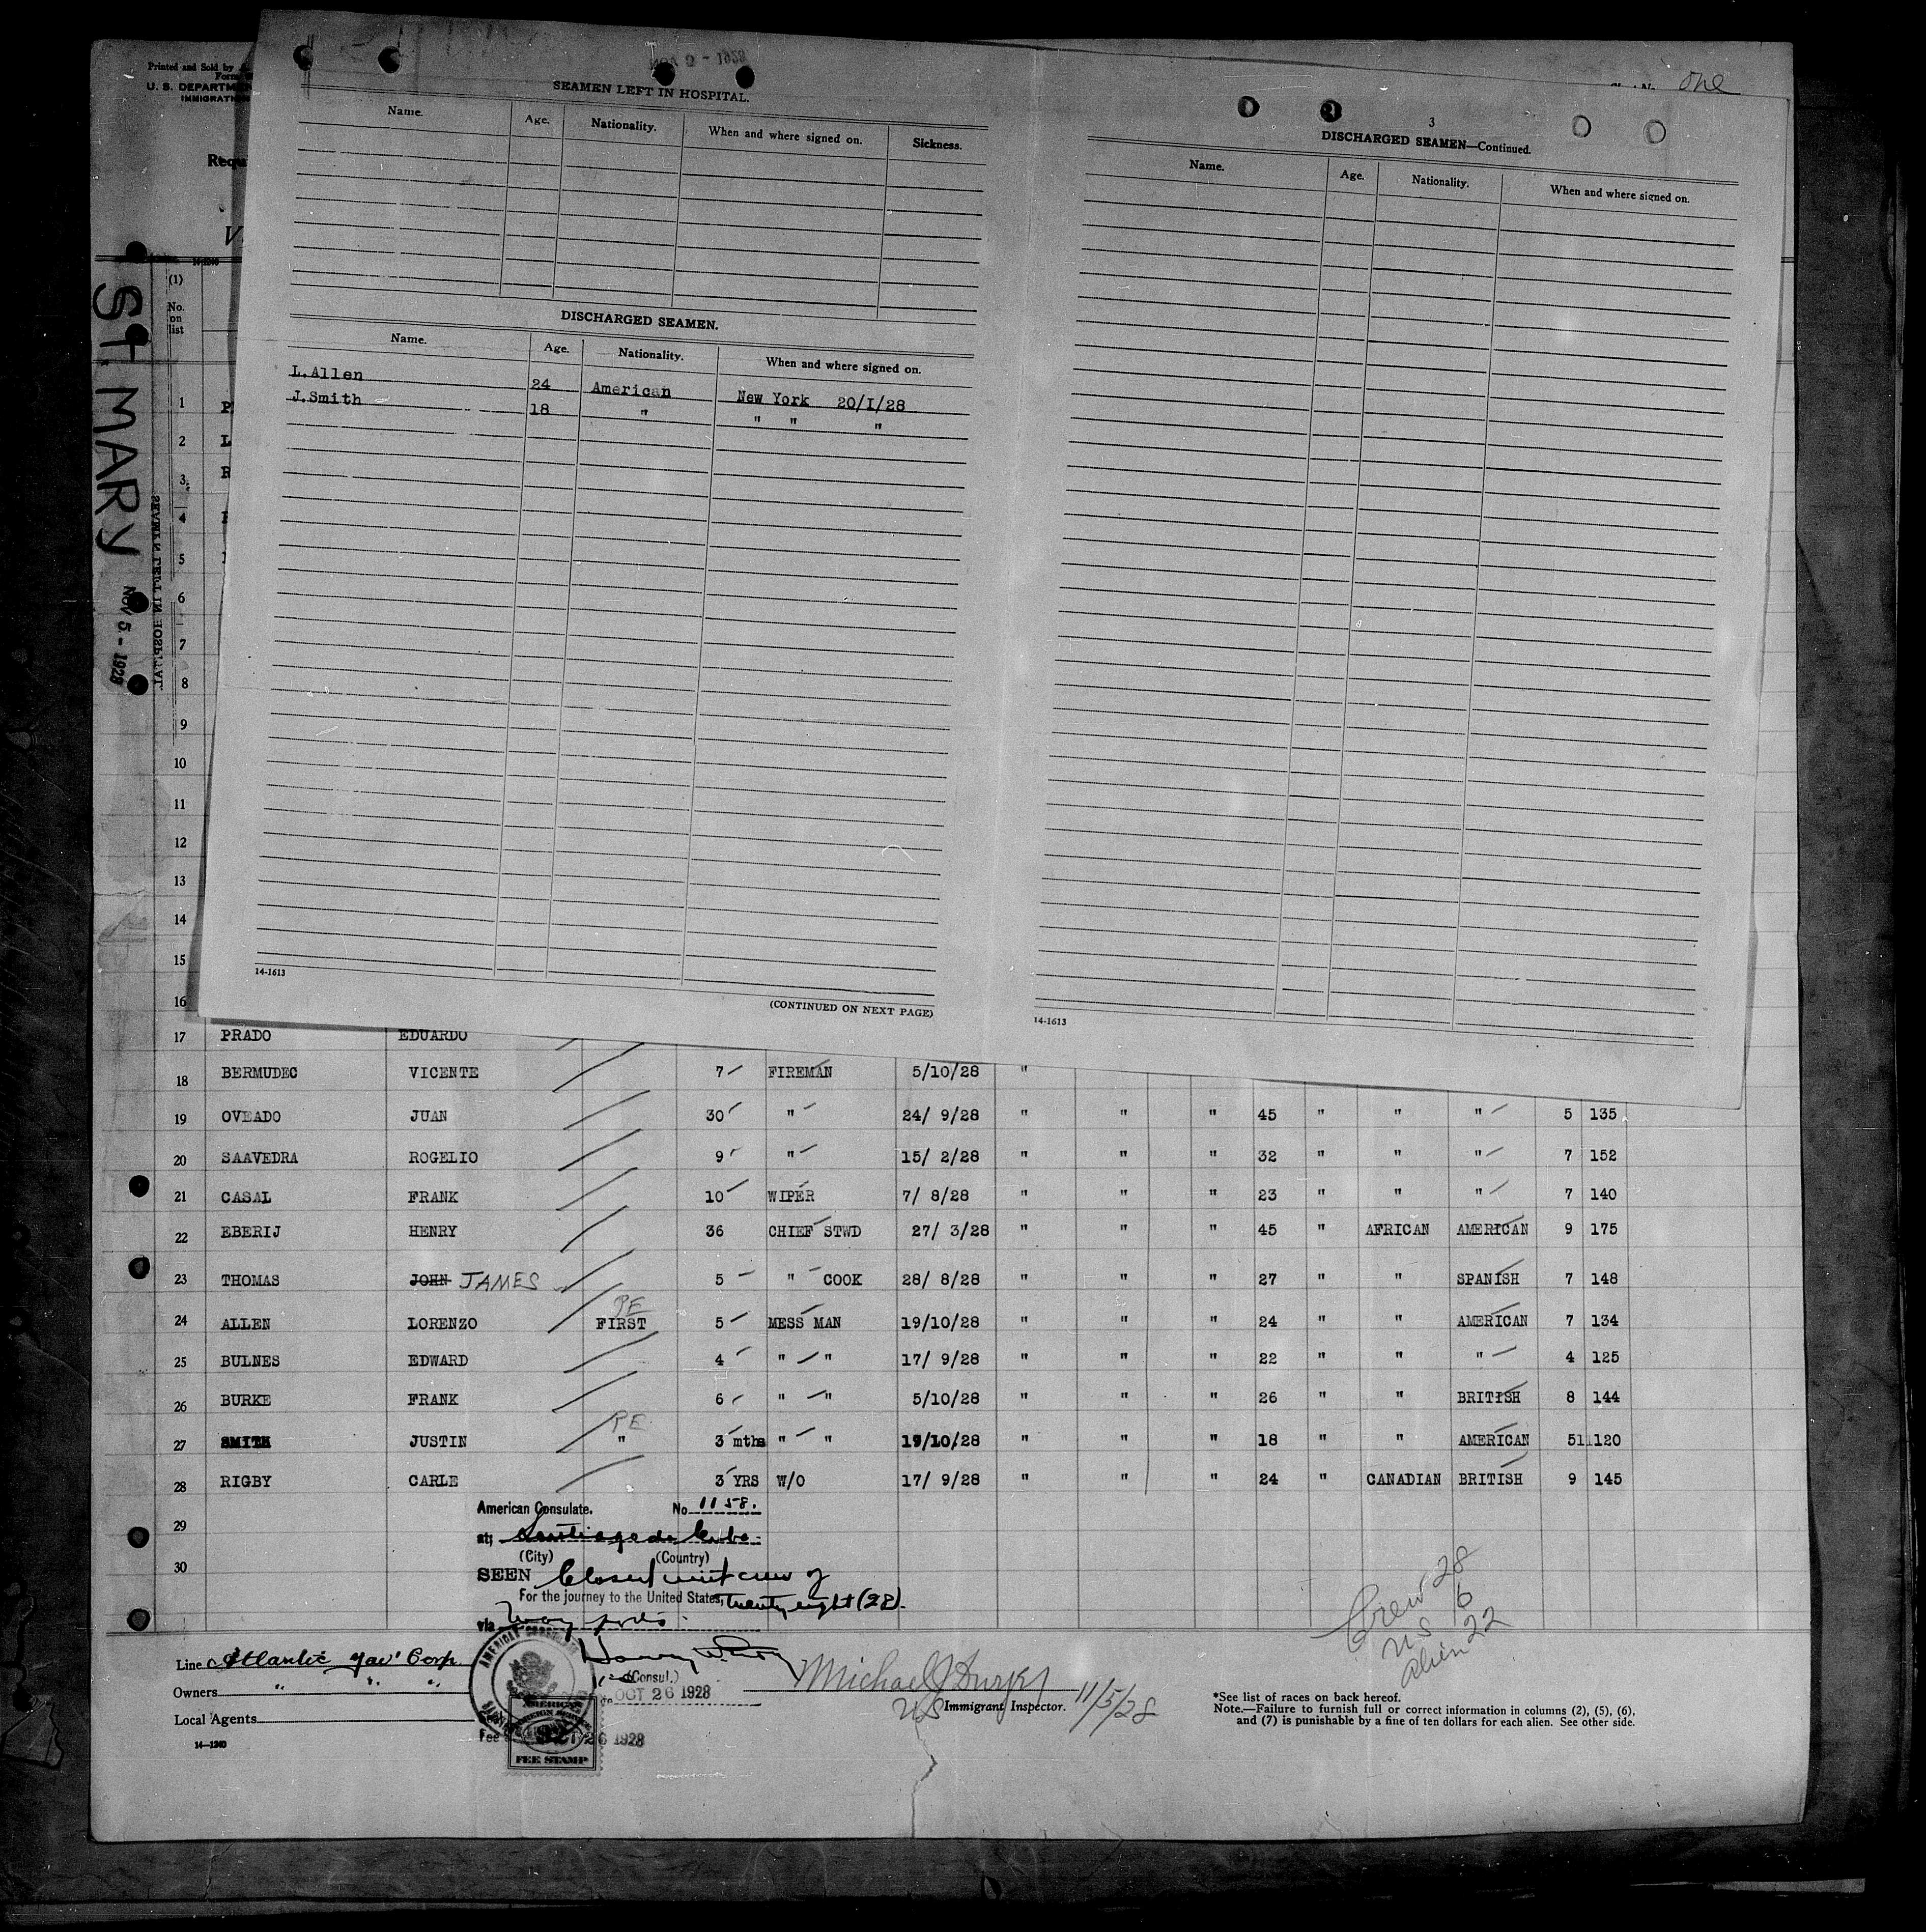 Printed and Sold by
Form
U. S. DEPARTMEN
IMMIGRATI
one
Requ
NOV 5 - 1928
SEAMEN LEFT IN HOSPITAL.
Name. Age. Nationality. When and where signed on. Sickness.
DISCHARGED SEAMEN.
Name. Age. Nationality. When and where signed on.
L.Allen 24 American New York 20/I/28
J.Smith 18 " " " "
14-1613
(CONTINUED ON NEXT PAGE)
3
DISCHARGED SEAMEN—Continued.
Name. Age. Nationality. When and where signed on.
14-1613
ST. MARY
NOV 5 - 1928
SEAMEN LEFT IN HOSPITAL
14-1240
(1)
No. on list
1 P
2 L
3 R
4
5
6
7
8
9
10
11
12
13
14
15
16
17 PRADO EDUARDO
18 BERMUDEC VICENTE 7 FIREMAN 5/10/28 "
19 OVEADO JUAN 30 " 24/ 9/28 " " " 45 " " " 5 135
20 SAAVEDRA ROGELIO 9 " 15/ 2/28 " " " 32 " " " 7 152
21 CASAL FRANK 10 WIPER 7/ 8/28 " " " 23 " " " 7 140
22 EBERIJ HENRY 36 CHIEF STWD 27/ 3/28 " " " 45 " AFRICAN AMERICAN 9 175
23 THOMAS JOHN JAMES 5 " COOK 28/ 8/28 " " " 27 " " SPANISH 7 148
24 ALLEN LORENZO PE FIRST 5 MESS MAN 19/10/28 " " " 24 " " AMERICAN 7 134
25 BULNES EDWARD 4 " " 17/ 9/28 " " " 22 " " " 4 125
26 BURKE FRANK 6 " " 5/10/28 " " " 26 " " BRITISH 8 144
27 SMITH JUSTIN PE " 3 mths " " 19/10/28 " " " 18 " " AMERICAN 511 120
28 RIGBY CARLE 3 YRS W/O 17/ 9/28 " " " 24 " CANADIAN BRITISH 9 145
29
30
American Consulate. No. 1158.
at; Santiago de Cuba
(City) (Country)
SEEN Closed visit crew of
For the journey to the United States, twenty eight (28).
via
Crew 28
US 6
Alien 22
Line Atlantic Nav' Corp.
Owners " " "
Local Agents
14-1240
AMERICAN CONSULATE
(Consul.)
OCT 26 1928
AMERICAN
FOREIGN SERVICE
Fee
FEE STAMP
26 1928
Michael J Dwyer
US Immigrant Inspector. 11/5/28
*See list of races on back hereof.
Note.—Failure to furnish full or correct information in columns (2), (5), (6),
and (7) is punishable by a fine of ten dollars for each alien. See other side.